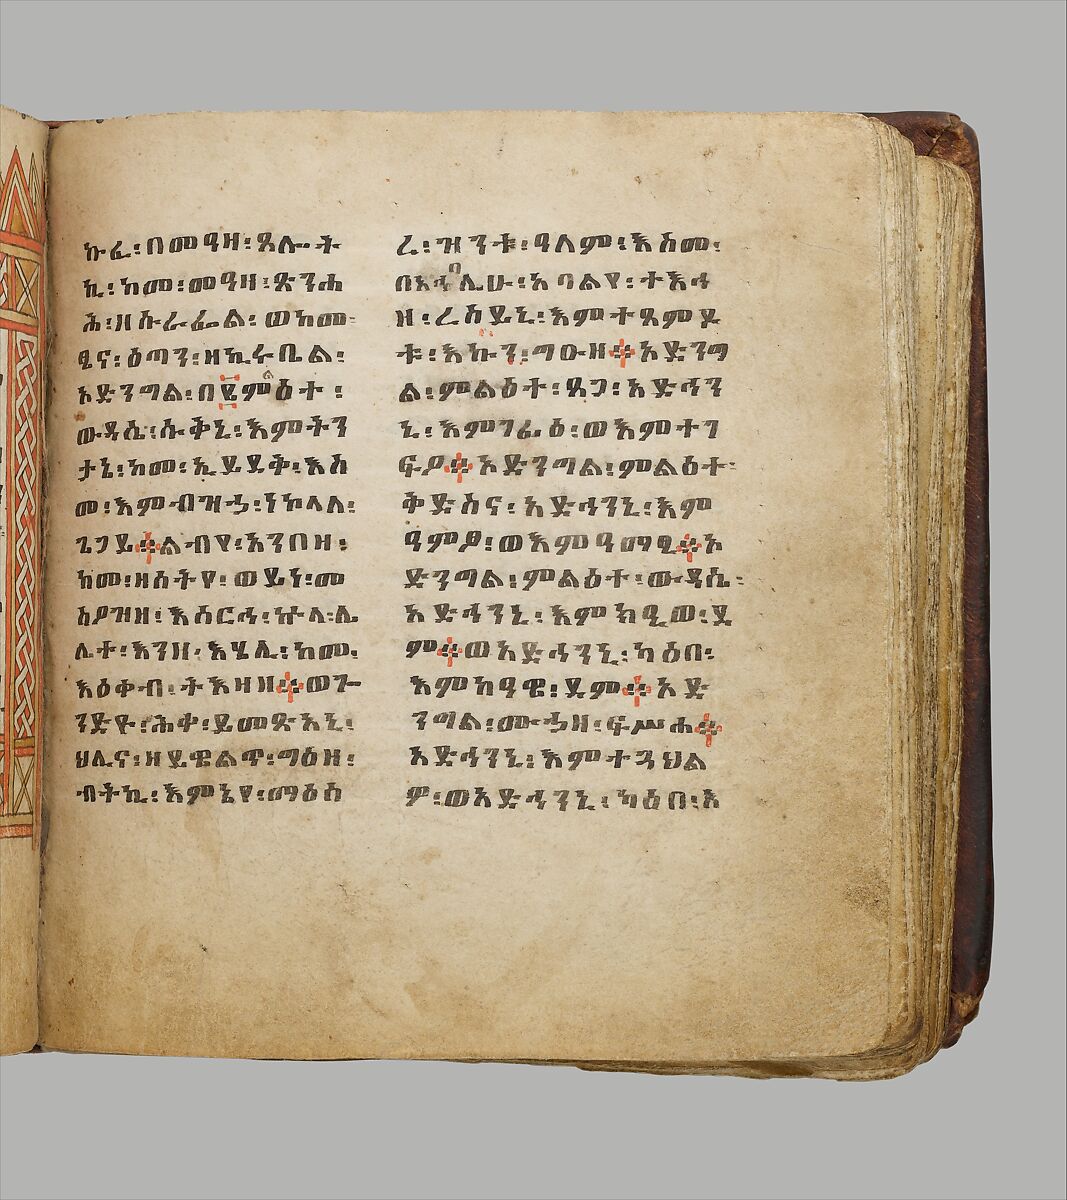 ኩፈ፡በመዓዛ፡ጸሎት
ኪ፡ከመ፡መዓዛ፡ጽንሐ
ሕ፡ዘሱራፌል፡ወከመ፡
ዒና፡ዕጣን፡ዘኪሩቤል፡
አድንግል፡በ፤ምዕተ፡
ውዳሴ፡ሱቅኒ፡እምትን
ታኒ፡ከመ፡ኢይደቅ፡እስ
መ፡እምብዝኃ፡ነኮላለ፡
ጌጋይ።ልብየ፡እንበዘ፡
ከመ፡ዘሰትየ፡ወይነ፡መ
እንዘ፡እሄሊ፡ከመ፡
እዕቀብ፡ትእዛዘ።ወጐ
ንድዮ፡ሕቀ፡ይመጽአኒ፡
ህሊና፡ዘይዌልጥ፡ግዕዘ፡
ብትኪ፡እምኔየ፡ማዕሰ
ረ፡ዝንቱ፡ዓለም፡እስመ፡
ዘ፡ረስይኒ፡እምተጸምዶ
ቱ፡እኩን፡ግዑዘ።አድንግ
ል፡ምልዕተ፡ጸጋ፡አድኅን
ኒ፡እምገፊዕ፡ወእምተገ
ፍዖ።አድንግል፡ምልዕተ፡
ቅድስና፡አድኅንኒ፡እም
ዓምፆ፡ወእምዓማፂ።አ
ድንግል፡ምልዕተ፡ውዳሴ፡
አድኅንኒ፡እምክዒወ፡ደ
ም።ወአድኅንኒ፡ካዕበ፡
እምከዓዌ፡ደም።አድ
ንግል፡ሙኃዘ፡ፍሥሐ።
አድኅንኒ፡እምተኃህል
ዎ፡ወአድኅንኒ፡ካዕበ፡እ